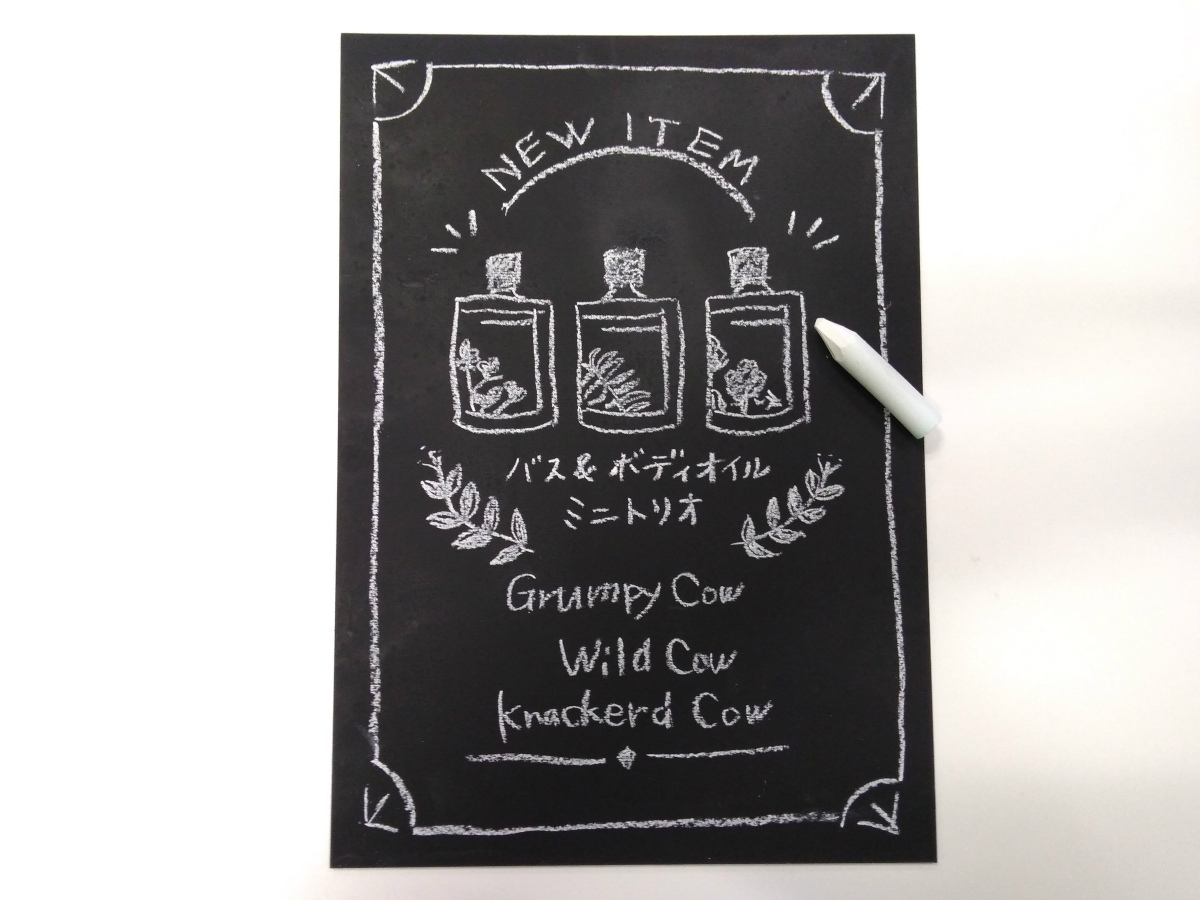 NEW ITEM
バス& ボディオイル
ミニトリオ
Grumpy Cow
Wild Cow
knackerd Cow